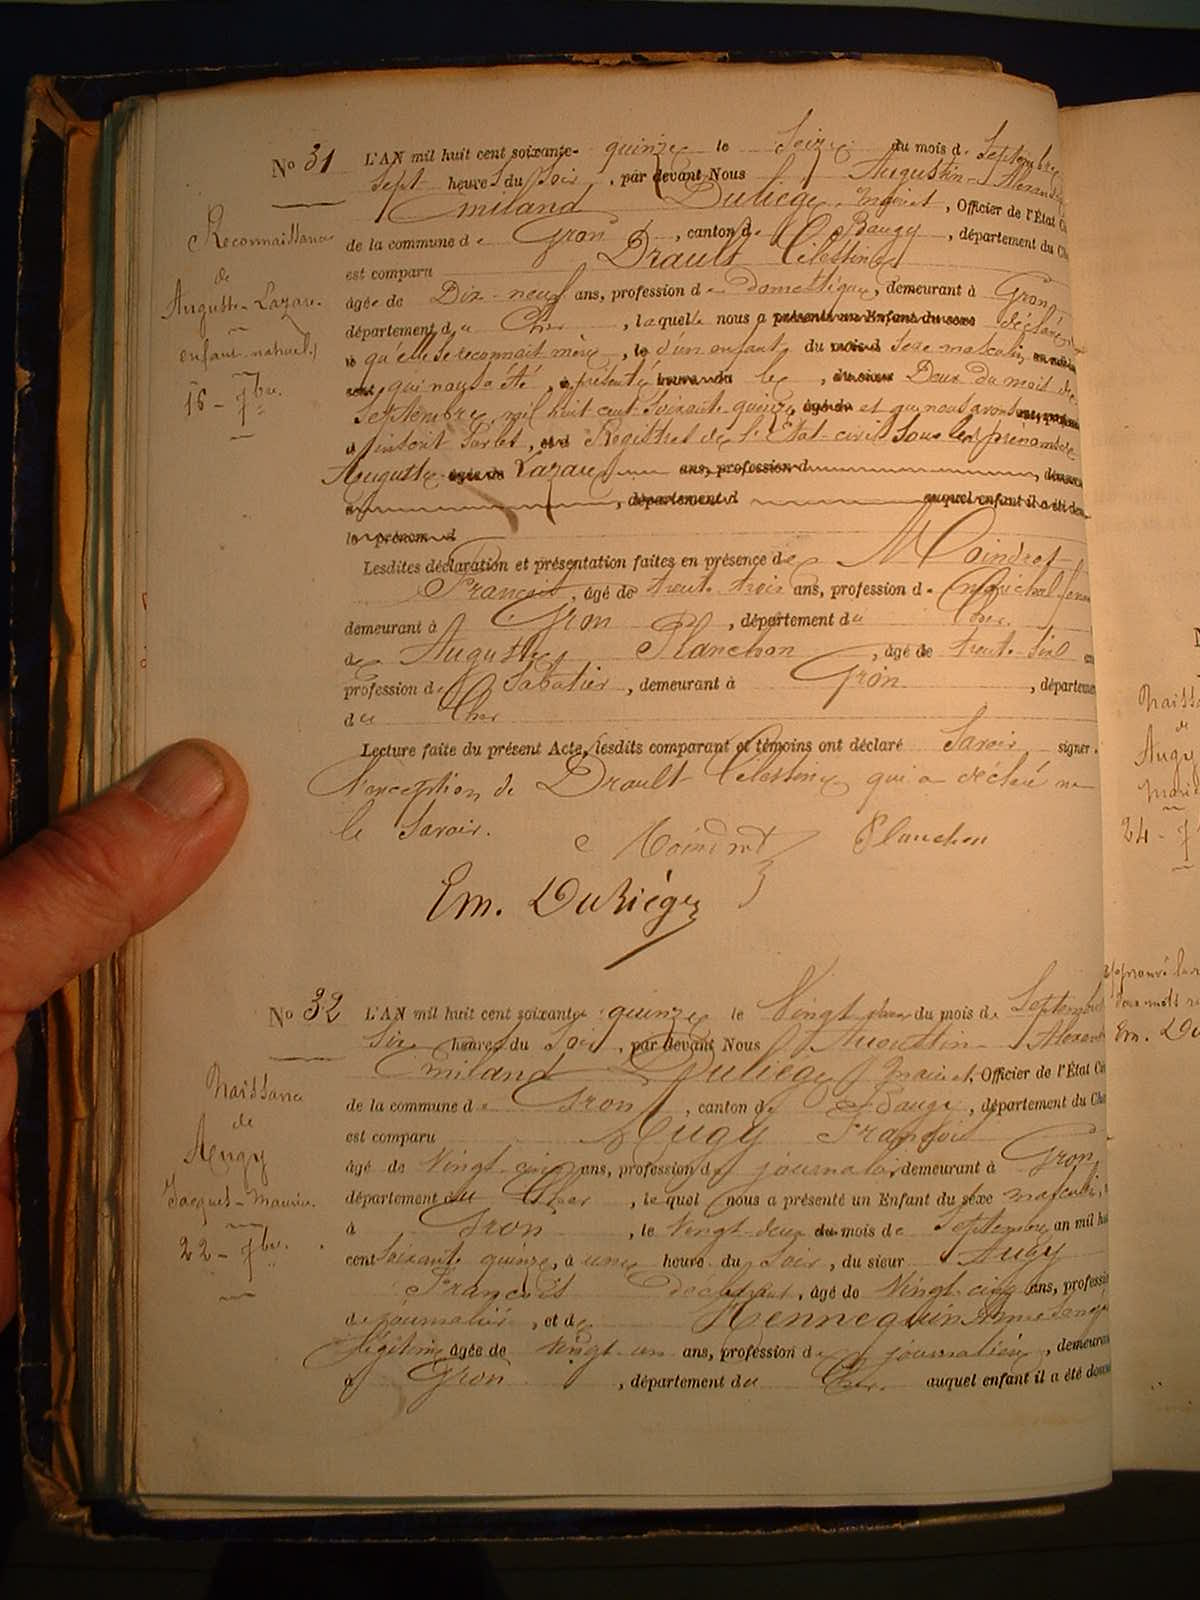 No 31 L'AN mil huit cent soixante- quinze le Seize du mois de Septembre
Sept heures du Soir, par devant Nous Augustin-
miland Duliège, maire, Officier de l'État
de la commune de Gron, canton de Baugy, département du
est comparu Drault Célestine
âgée de Dix-neuf ans, profession de domestique, demeurant à Gron
département du Cher, laquelle nous a présenté un Enfant du sexe déclaré
qu'elle se reconnait mère, d'un enfant du Sexe masculin
qui nous a été présenté le Deux du mois de
Septembre mil huit cent soixante quinze, et que nous avons
inscrit sur les Registres de l'Etat-civil sous les prénoms de
Auguste âgée de Lazare ans, profession d
, département d auquel enfant il a été
le prénom d
Lesdites déclaration et présentation faites en présence de Moindrot
François, âgé de trente trois ans, profession de Maréchal
demeurant à Gron, département du Cher
de Auguste Planchon, âgé de trente-six
profession de Sabotier, demeurant à Gron, départeme
du Cher
Lecture faite du présent Acte, lesdits comparant et témoins ont déclaré Savoir signer.
à l'exception de Drault Célestine qui a déclaré ne
le Savoir.
Moindrot Planchon
Em. Duliège
Reconnaissance
de
Auguste-Lazare
enfant naturel
16-7bre
No 32 L'AN mil huit cent soixante quinze le Vingt deux du mois de Septembre
Six heures du Soir, par devant Nous Augustin
miland Duliège maire, Officier de l'État Ci
de la commune de Gron, canton de Baugy, département du Che
est comparu Augy François
âgé de Vingt-cinq ans, profession de journalier demeurant à Gron
département du Cher, lequel nous a présenté un Enfant du sexe masculin,
à Gron, le Vingt deux du mois de Septembre an mil hui
cent Soixante quinze, à une heure du Soir, du sieur Augy
François Déclarant, âgé de Vingt-cinq ans, professio
de journalier, et de Hennequin Anne
légitime âgée de Vingt-un ans, profession de journalière, demeuran
à Gron, département du Cher. auquel enfant il a été donn
Naissance
de
Augy
Jacques-Maurice
22-7bre
Naissa
de
Augy
24-7
Em. Du